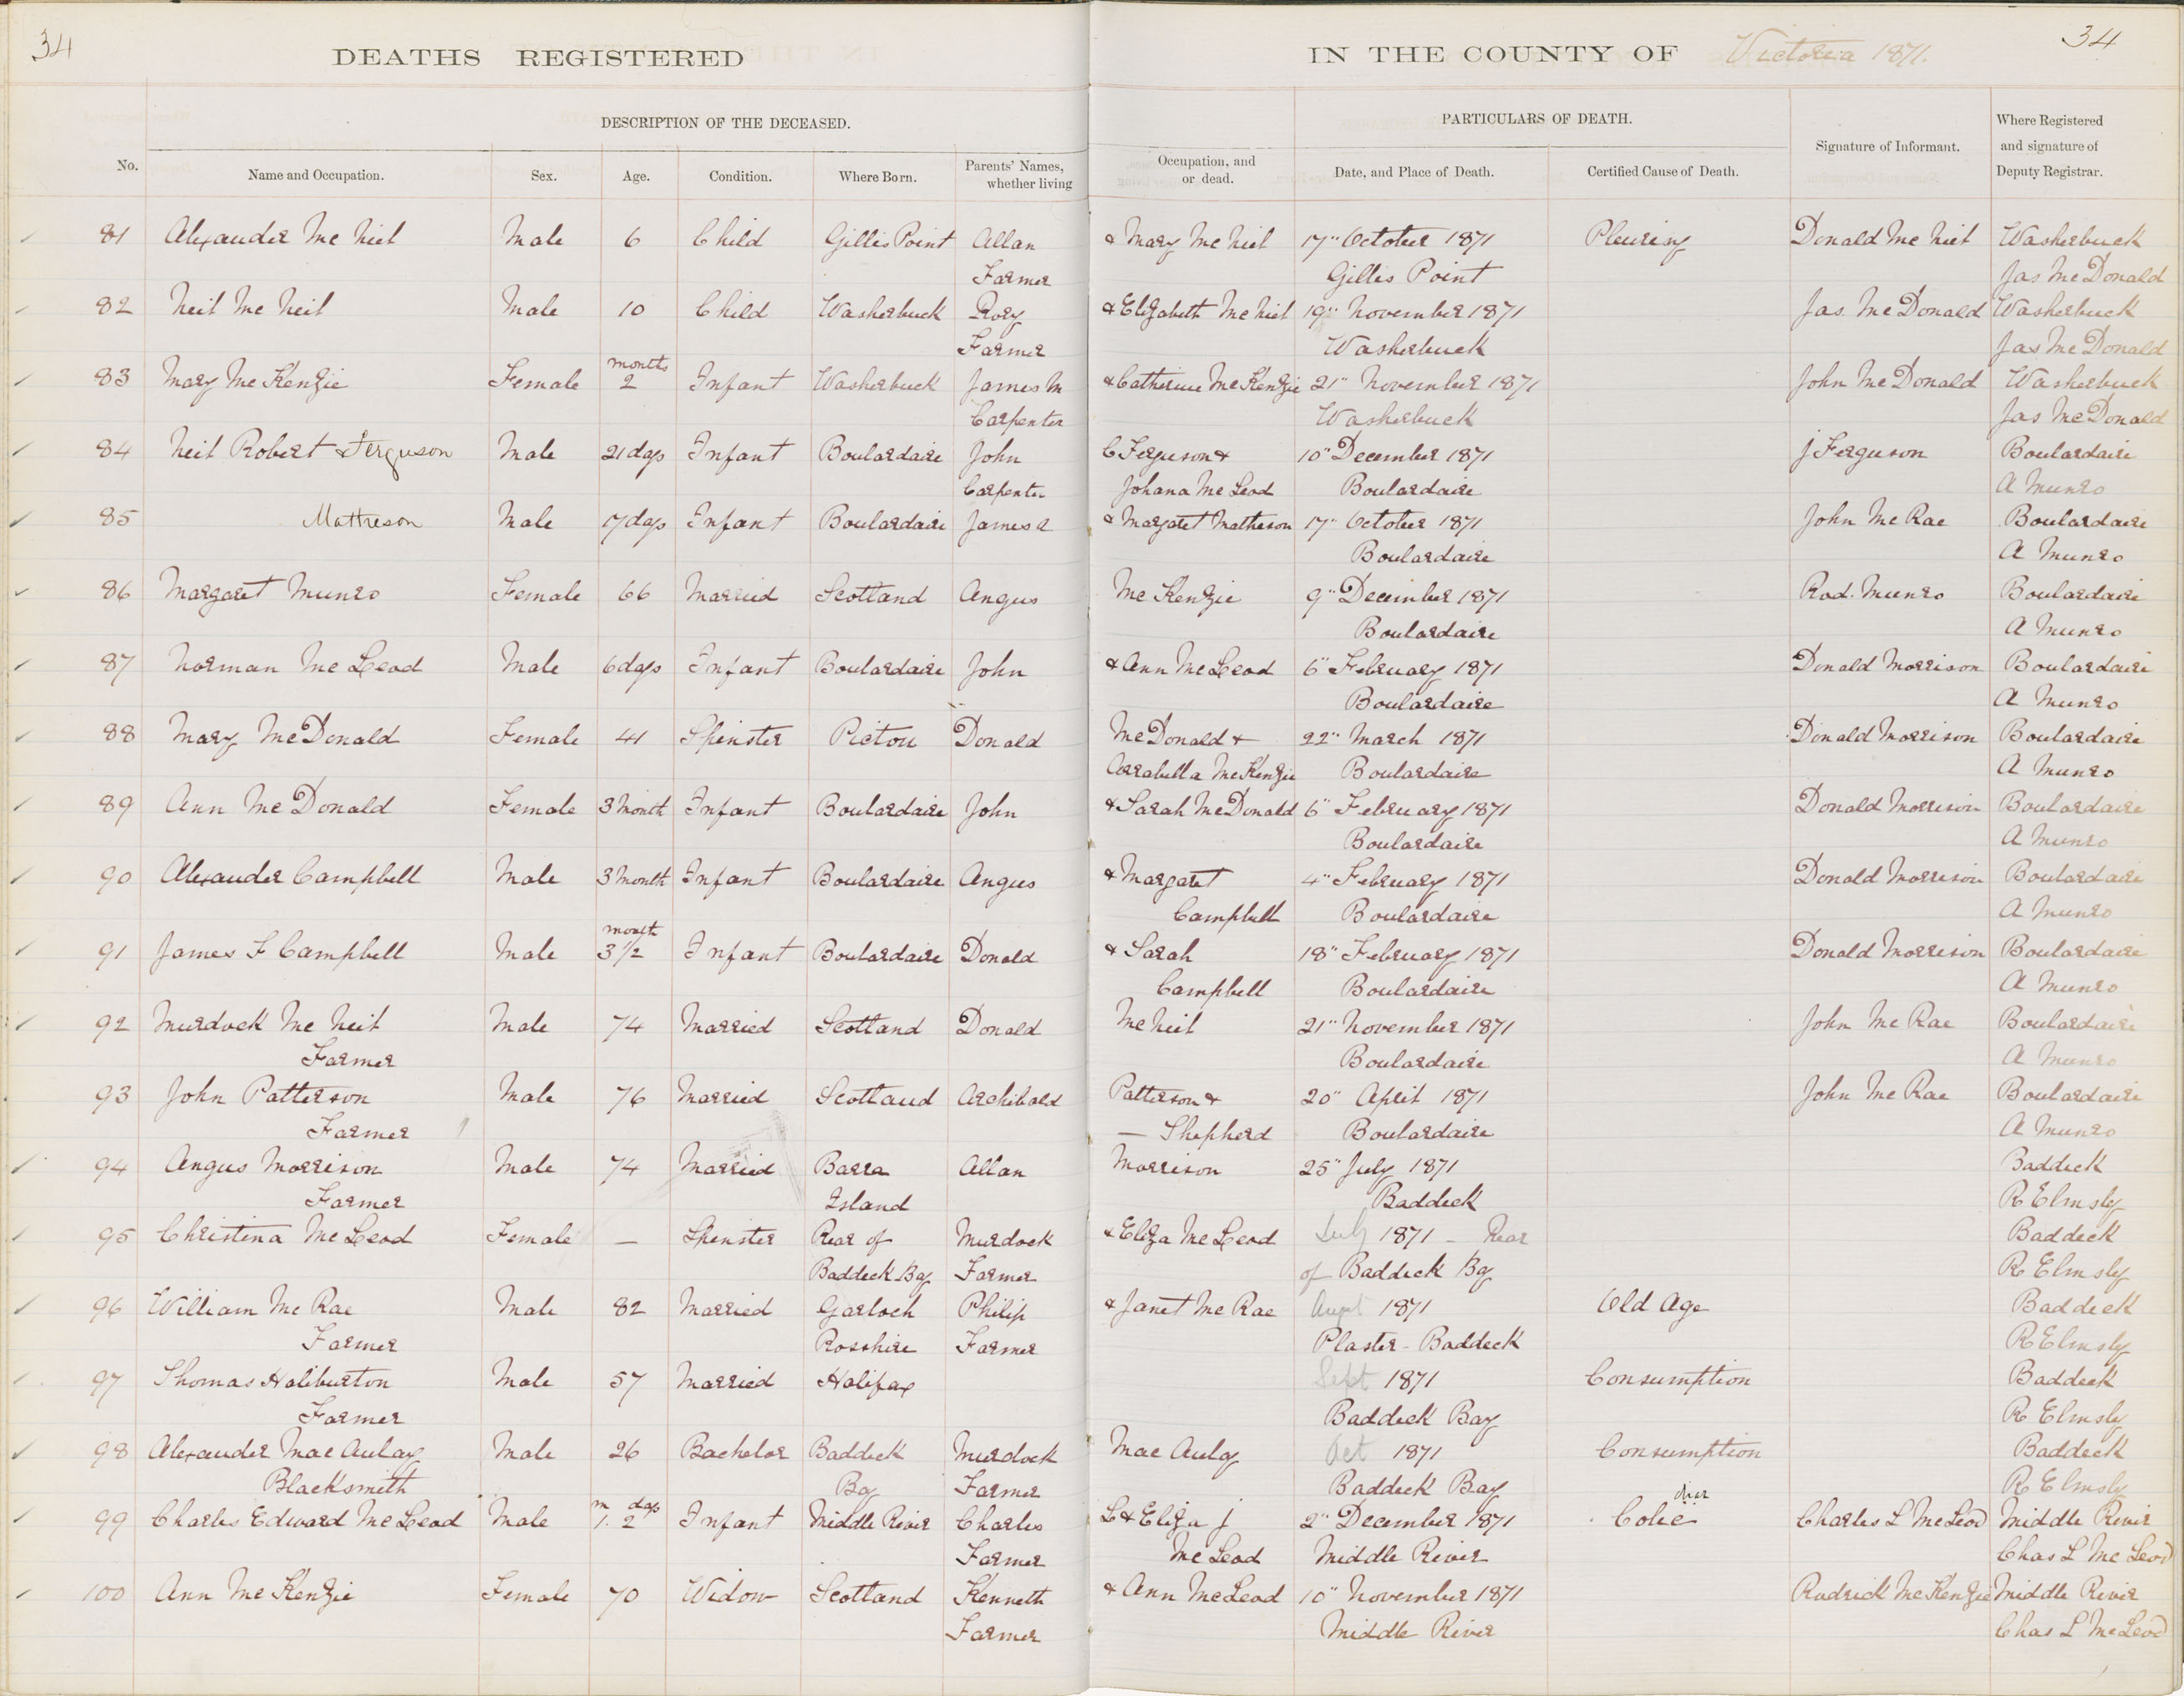 34
DEATHS REGISTERED IN THE COUNTY OF Victoria 1871.
34
DESCRIPTION OF THE DECEASED. PARTICULARS OF DEATH.
No. Name and Occupation. Sex. Age. Condition. Where Born. Parents' Names, whether living Occupation, and or dead. Date, and Place of Death. Certified Cause of Death. Signature of Informant. Where Registered and signature of Deputy Registrar.
81 Alexander McNeil Male 6 Child Gillis Point Allan & Mary McNeil 17" October 1871 Pleurisy Donald McNeil Washerbuck
Farmer Gillis Point Jas McDonald
82 Neil McNeil Male 10 Child Washerbuck Rory & Elizabeth McNeil 19" November 1871 Jas. McDonald Washerbuck
Farmer Washerbuck Jas McDonald
months
83 Mary McKenzie Female 2 Infant Washerbuck James M & Catherine McKenzie 21" November 1871 John McDonald Washerbuck
Carpenter Washerbuck Jas McDonald
84 Neil Robert Ferguson Male 21 days Infant Boulardaire John C Ferguson & 10" December 1871 J Ferguson Boulardaire
Carpenter Johana McLeod Boulardaire A Munro
85 Matheson Male 17 days Infant Boulardaire James & Margaret Matheson 17" October 1871 John McRae Boulardaire
Boulardaire A Munro
86 Margaret Munro Female 66 Married Scotland Angus McKenzie 9" December 1871 Rod. Munro Boulardaire
Boulardaire A Munro
87 Norman McLeod Male 6 days Infant Boulardaire John & Ann McLeod 6" February 1871 Donald Morrison Boulardaire
Boulardaire A Munro
88 Mary McDonald Female 41 Spinster Pictou Donald McDonald & 22" March 1871 Donald Morrison Boulardaire
Arrabella McKenzie Boulardaire A Munro
89 Ann McDonald Female 3 Month Infant Boulardaire John & Sarah McDonald 6" February 1871 Donald Morrison Boulardaire
Boulardaire A Munro
90 Alexander Campbell Male 3 Month Infant Boulardaire Angus & Margaret 4" February 1871 Donald Morrison Boulardaire
Campbell Boulardaire A Munro
month
91 James F Campbell Male 3 1/2 Infant Boulardaire Donald & Sarah 18" February 1871 Donald Morrison Boulardaire
Campbell Boulardaire A Munro
92 Murdock McNeil Male 74 Married Scotland Donald McNeil 21" November 1871 John McRae Boulardaire
Farmer Boulardaire A Munro
93 John Patterson Male 76 Married Scotland Archibald Patterson & 20" April 1871 John McRae Boulardaire
Farmer — Shepherd Boulardaire A Munro
94 Angus Morrison Male 74 Married Barra Allan Morrison 25" July 1871 Baddeck
Farmer Island Baddeck R Elmsly
95 Christina McLeod Female — Spinster Rear of Murdock & Eliza McLeod July 1871 - Rear Baddeck
Baddeck Bay Farmer of Baddeck Bay R Elmsly
96 William McRae Male 82 Married Garloch Philip & Janet McRae Augst 1871 Old Age Baddeck
Farmer Rosshire Farmer Plaster - Baddeck R Elmsly
97 Thomas Haliburton Male 57 Married Halifax Sept 1871 Consumption Baddeck
Farmer Baddeck Bay R Elmsly
98 Alexander MacAulay Male 26 Bachelor Baddeck Murdock MacAuly Oct 1871 Consumption Baddeck
Blacksmith Bay Farmer Baddeck Bay R Elmsly
m days
99 Charles Edward McLeod Male 1. 2 Infant Middle River Charles L & Eliza J 2" December 1871 Colic Charles L McLeod Middle River
Farmer McLeod Middle River Chas L McLeod
100 Ann McKenzie Female 70 Widow Scotland Kenneth & Ann McLeod 10" November 1871 Rodrick McKenzie Middle River
Farmer Middle River Chas L McLeod